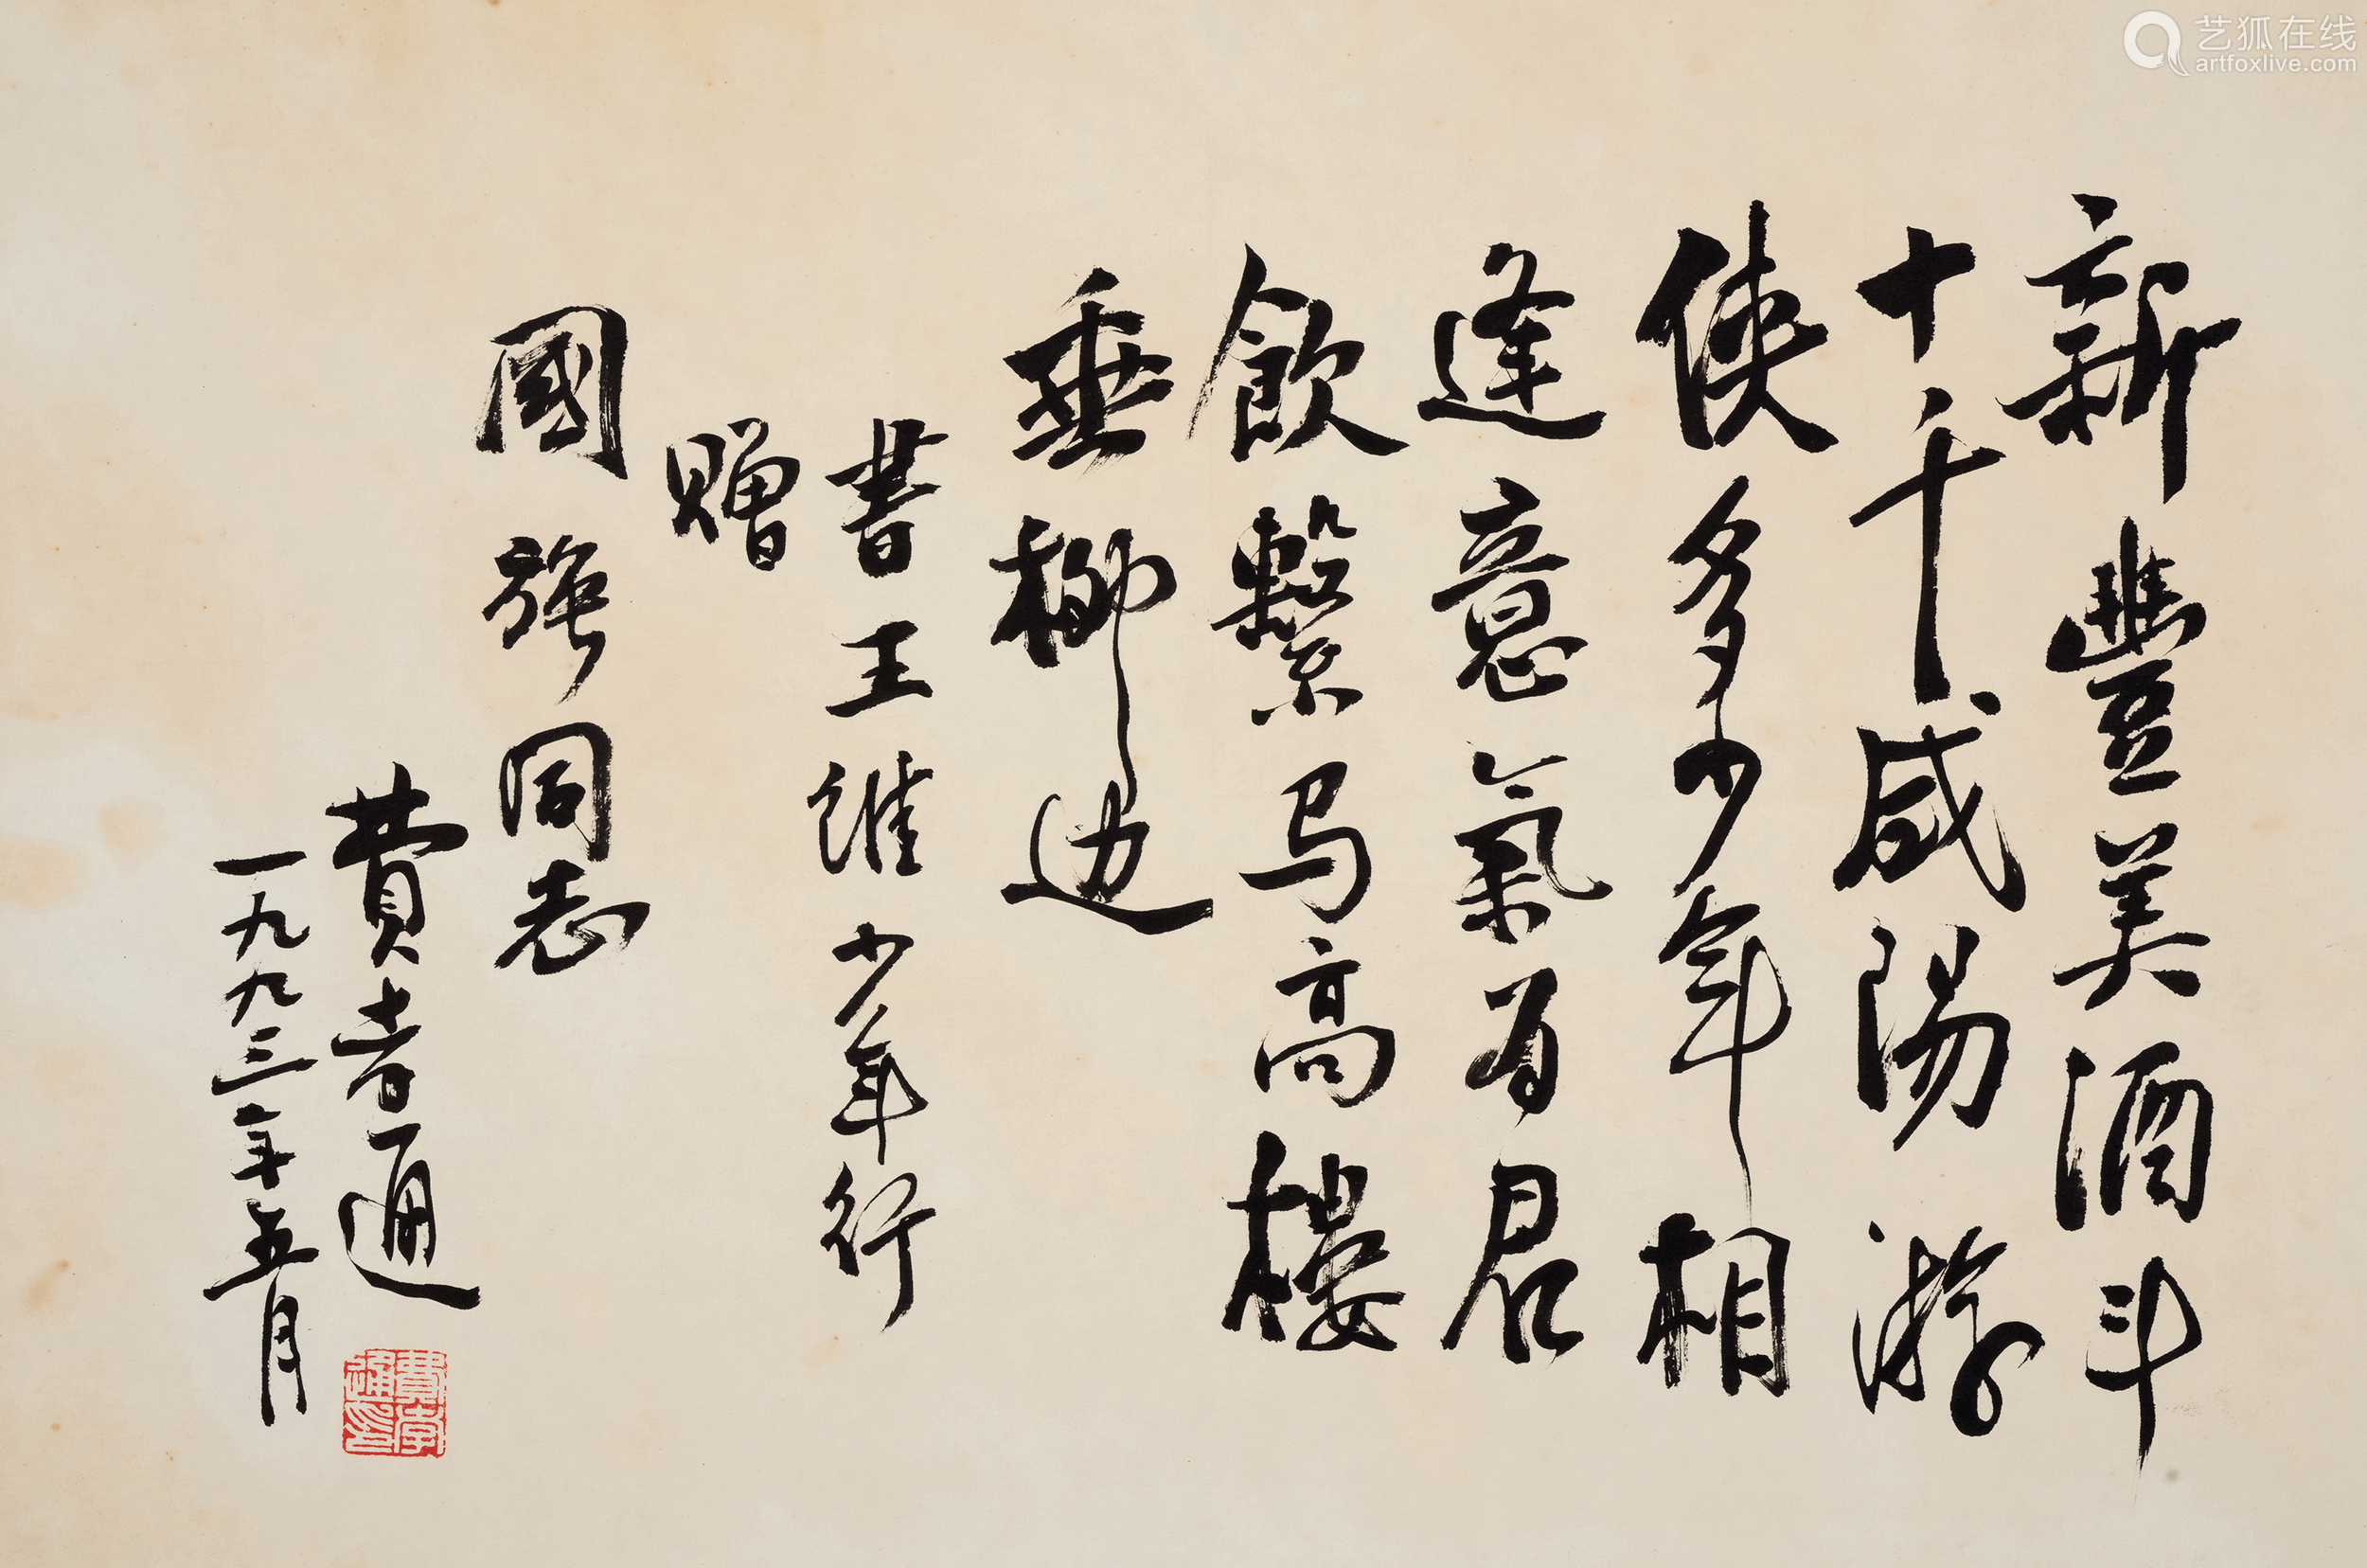 新豐美酒斗
十千咸陽游
侠多少年相
逢意氣為君
飲繫马高樓
垂柳边
書王維少年行
贈
國強同志
費孝通
一九九三年五月
費孝通印
艺狐在线
artfoxlive.com